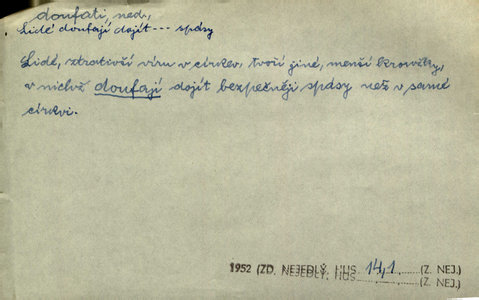 doufati, ned,
Lidé doufají dojít --- spásy
Lidé, ztrativší víru v církev, tvoří jiné, menší kroužky,
v nichž doufají dojít bezpečněji spásy než v samé
církvi.
1952 (ZD. NEJEDLÝ, HUS 14,1 (Z. NEJ.)
(Z. NEJ.)